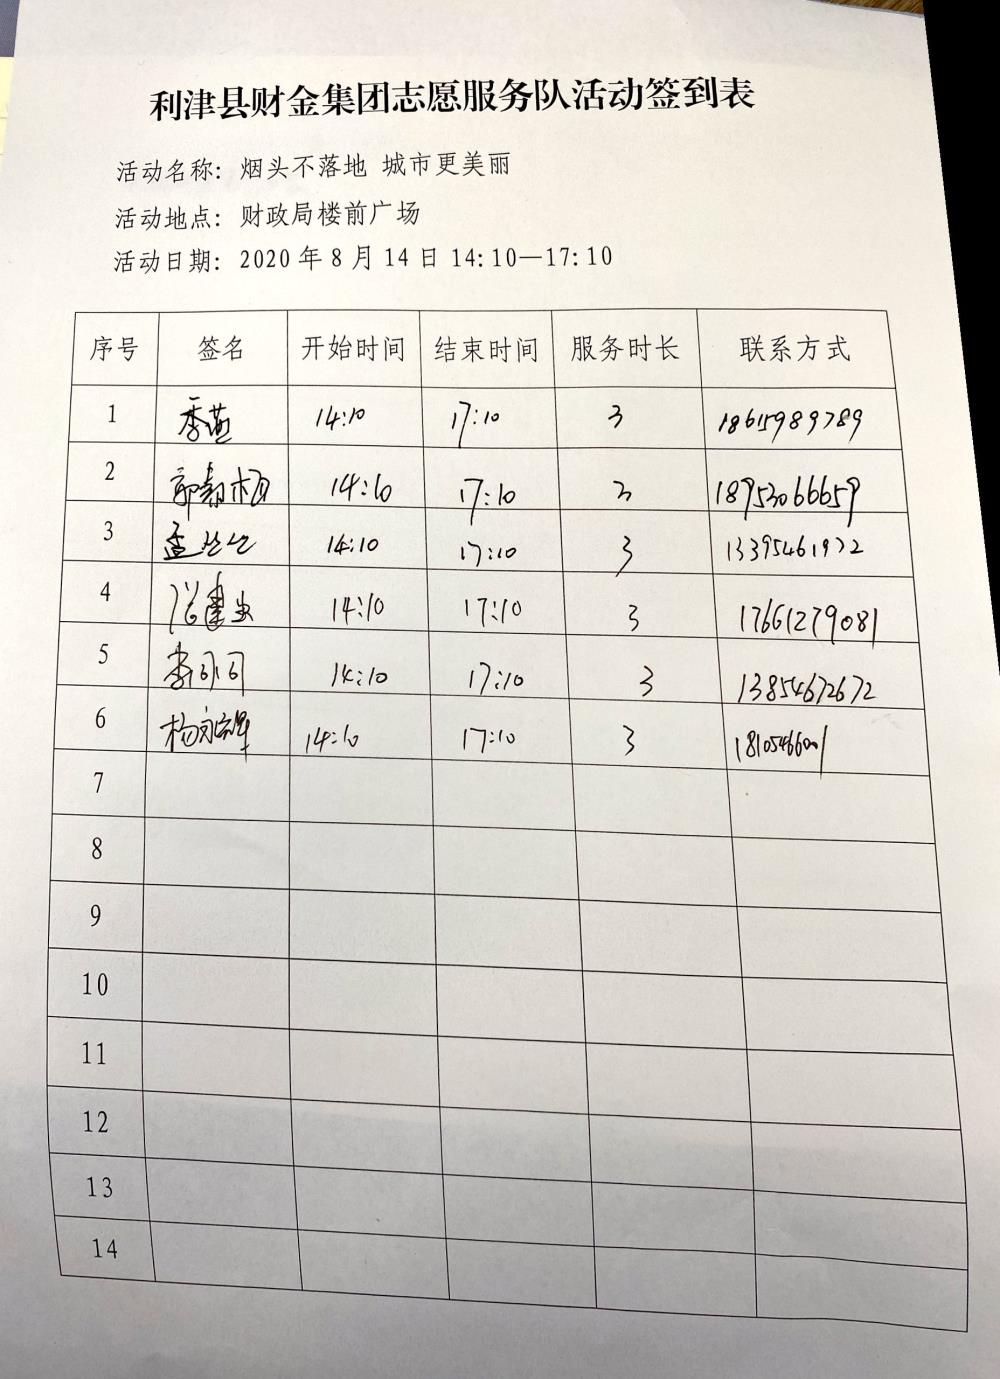 利津县财金集团志愿服务队活动签到表
活动名称：烟头不落地 城市更美丽
活动地点：财政局楼前广场
活动日期：2020年8月14日14:10—17:10
序号 签名 开始时间 结束时间 服务时长 联系方式
1 季燕 14:10 17:10 3 18615989789
2 14:10 17:10 3 18953066659
3 14:10 17:10 3 13395461972
4 14:10 17:10 3 17661279081
5 李问问 14:10 17:10 3 13854672672
6 14:10 17:10 3
7
8
9
10
11
12
13
14